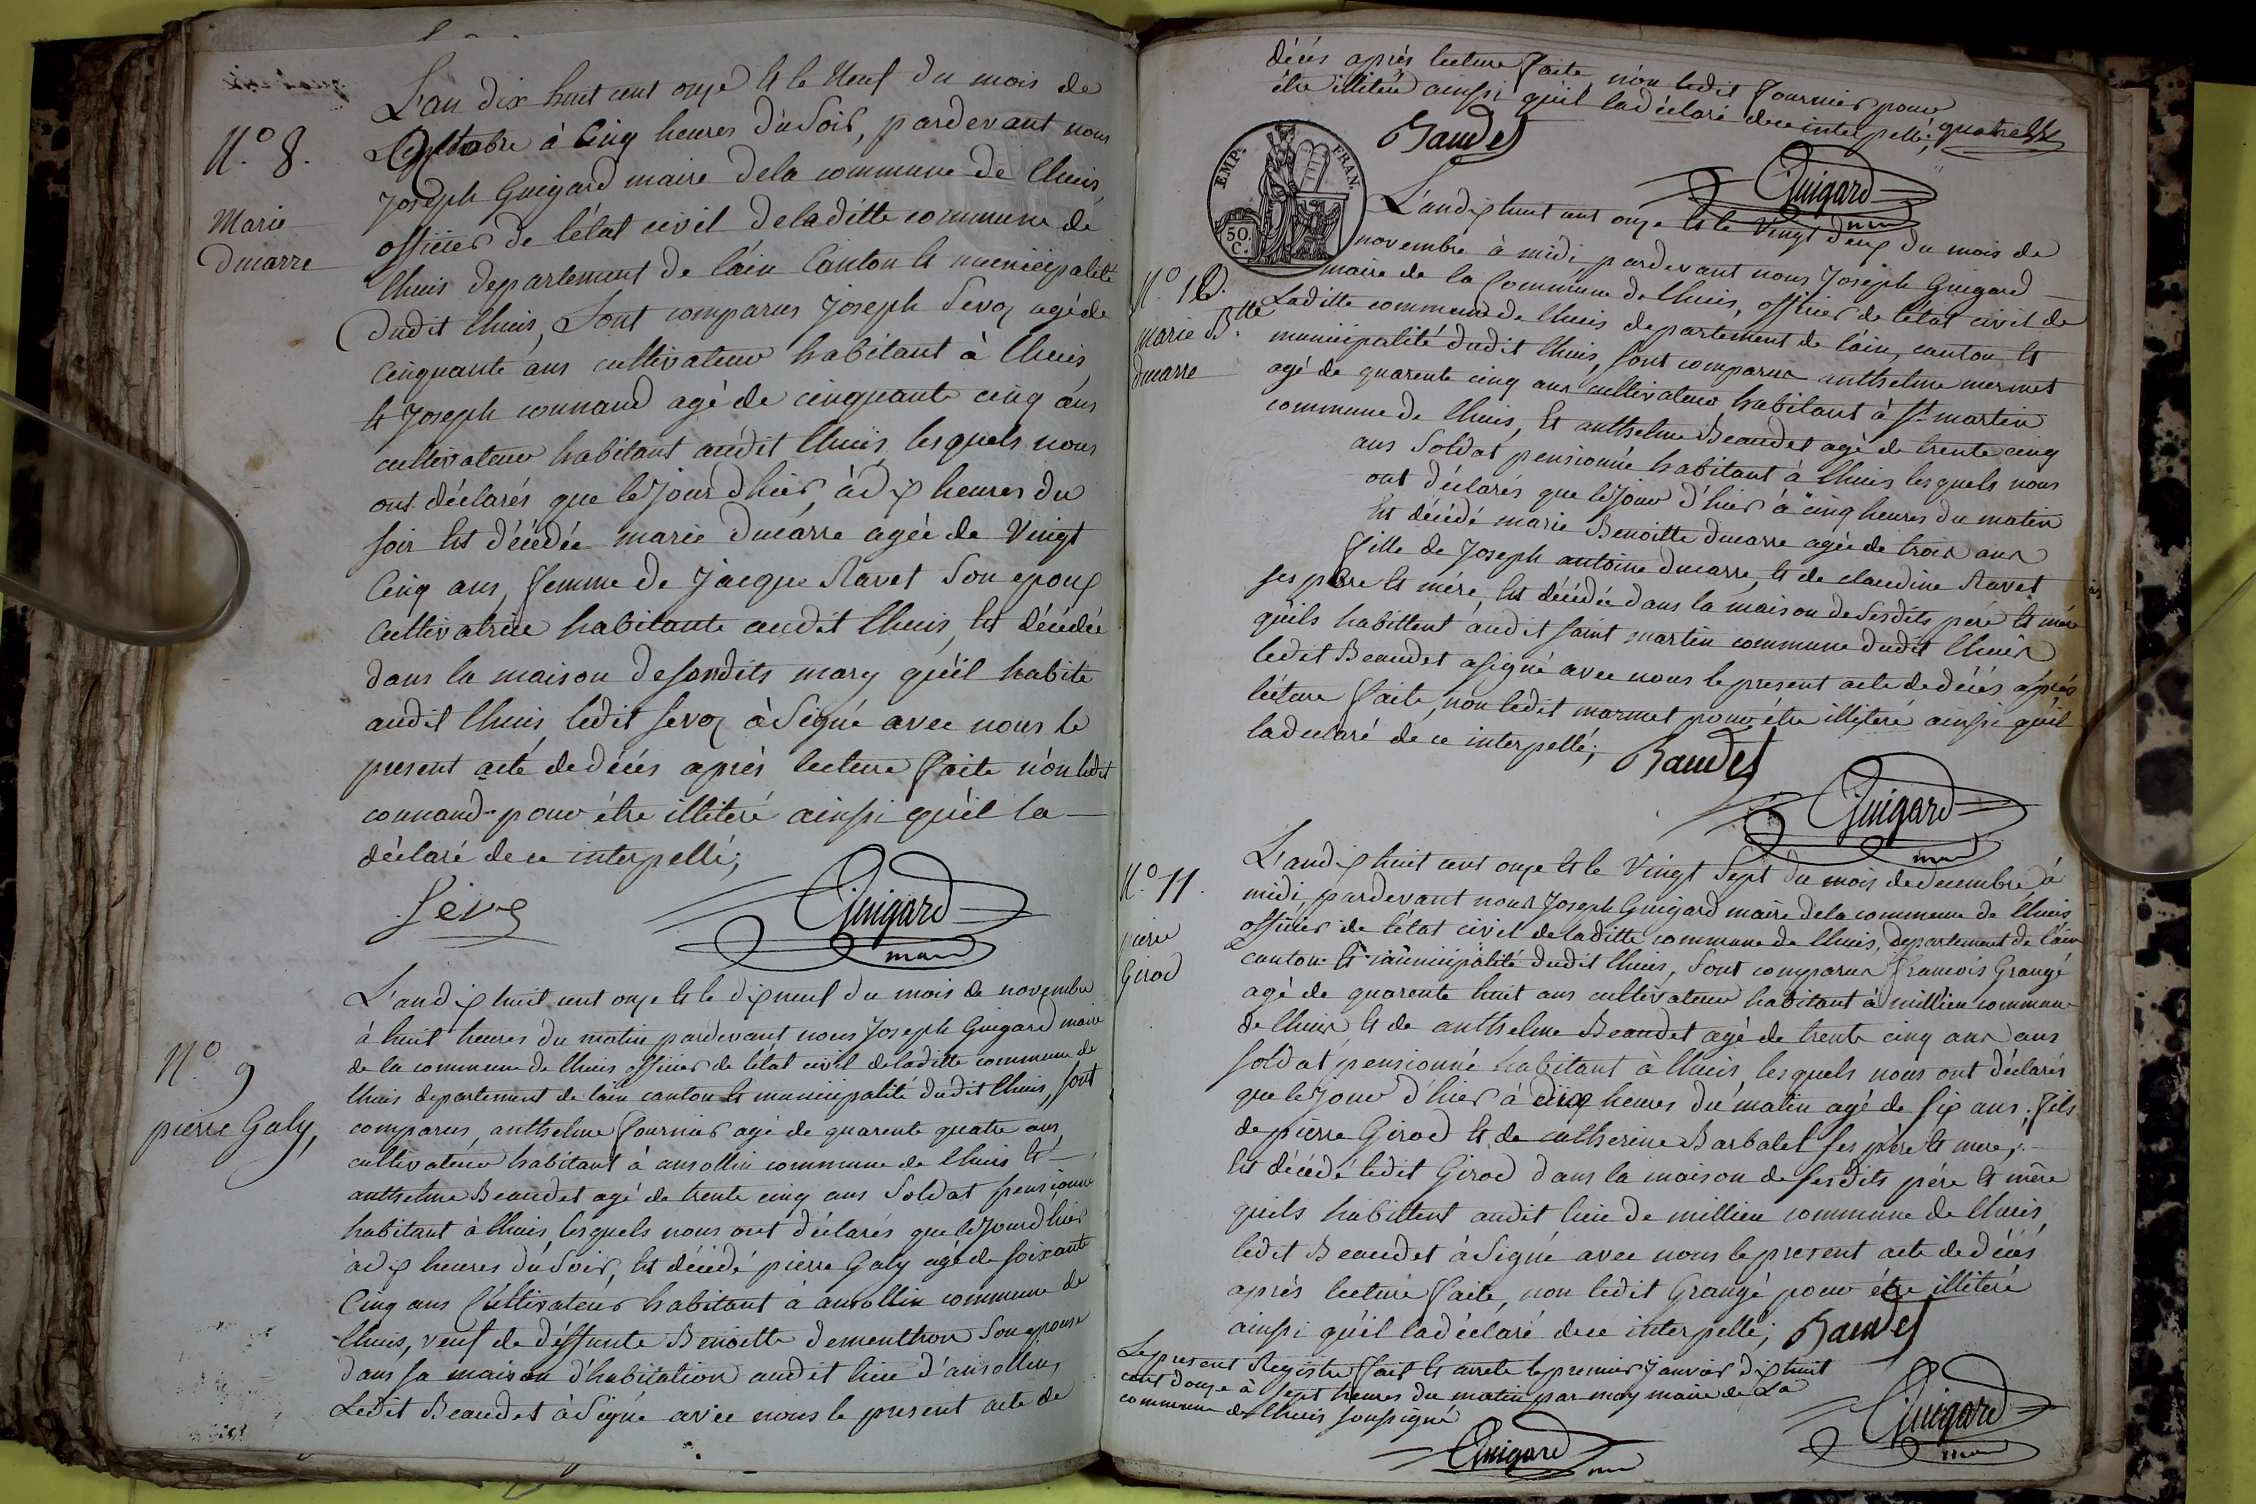 L'an dix huit cent onze et le Neuf du mois de
à Cinq heures du Soir, pardevant nous
Joseph Guigard maire dela commune de lhuis
officier de létat civil deladitte commune de
lhuis departement de l'ain Canton et municipalité
dudit lhuis, Sont comparus Joseph Sevoz agé de
cinquante ans cultivateur habitant à lhuis
et Joseph connand agé de cinquante cinq ans
cultivateur habitant audit lhuis, lesquels nous
ont déclarés que le jour dhier, à dix heures du
soir est décédée marie ducarre agée de Vingt
Cinq ans, femme de Jacque Ravet Son epoux
Cultivatrice habitante audit lhuis, est décédée
dans la maison desondits mary qu'il habite
audit lhuis, ledit sevoz à Signé avec nous le
present acte dedécés après lecture faite nón ledit
connand pour être illiteré ainsi qu'il la
déclaré de ce interpellé;
N.o 8.
Marie
Ducarre
Sévoz
Guigard
maire
L'an dix huit cent onze et le dix neuf du mois de novembre
à huit heures du matin pardevant nous Joseph Guigard maire
de la commune de lhuis officier de létat civil deladitte commune de
lhuis departement de lain canton et municipalité dudit lhuis, sont
comparus, anthelme fournier agé de quarente quatre ans
cultivateur habitant à ansollin commune de lhuis et
anthelme Beaudet agé de trente cinq ans Soldat pensionné
habitant à lhuis, lesquels nous ont déclarés que le Jour dhier
à dix heures du Soir, est décédé pierre Galy agé de soixante
Cinq ans Cultivateur habitant à ansollin commune de
lhuis, veuf de déffunte Benoitte dementhon Son epouse
dans sa maison d'habitation audit lieu d'ansollin,
Ledit Beaudet à Signé avec nous le present acte de
N.o 9
pierre Galy,
décés après lecture faite, nón ledit fournier pour
être illiteré ainsi qu'il la déclaré de ce interpellé;
Baudet
Guigard
maire
EMP. FRAN.
50.
C.
L'an dix huit cent onze et le Vingt deux du mois de
novembre à midi pardevant nous Joseph Guigard
maire de la Commune de lhuis, officier de létat civil de
Laditte commune de lhuis departement de l'ain, canton et
municipalité dudit lhuis, sont comparus anthelme mermet
agé de quarente cinq ans cultivateur habitant à st martin
commune de lhuis, et anthelme Beaudet agé de trente cinq
ans Soldat pensionné habitant à lhuis lesquels nous
ont déclarés que le Jour d'hier à cinq heures du matin
est décédé marie Benoitte ducarre agée de trois ans
fille de Joseph antoine ducarre, et de claudine Ravet
ses pere et mére, est décédée dans la maison desesdits pére et mére
quils habittent audit saint martin commune dudit lhuis
ledit Beaudet asigné avec nous le present acte dedécés après
lécture faite, nón ledit marmet pour être illiteré ainsi qu'il
ladeclaré de ce interpellé;
N.o 10.
marie B.tte
ducarre
Baudet
Guigard
maire
L'an dix huit cent onze et le Vingt Sept du mois dedecembre à
midi, pardevant nous Joseph Guigard maire dela commune de lhuis
officier de létat civil deladitte commune de lhuis, departement de l'ain
canton et municipalité dudit lhuis, Sont comparus francois Grangé
agé de quarente huit ans cultivateur habitant à millieu commune
de lhuis et de anthelme Beaudet agé de trente cinq ans ans
soldat pensionné habitant à lhuis, lesquels nous ont déclarés
que le Jour d'hier à dix heures du matin agé de six ans fils
de pierre Girod et de catherine Barbalet ses père et mere;
est décédé ledit Girod dans la maison desesdits pére et mère
quils habittent audit lieu de millieu commune de lhuis
ledit Beaudet à Signé avec nous le present acte dedécés
après lecture faite, nón ledit Grangé pour être illiteré
ainsi qu'il ladéclaré de ce interpellé;
N.o 11.
pierre
Girod
Baudet
Guigard
maire
Le present Registre fait et arreté le premier janvier dix huit
cent douze à sept heures du matin par moy maire de La
commune de lhuis soussigné
Guigard
maire